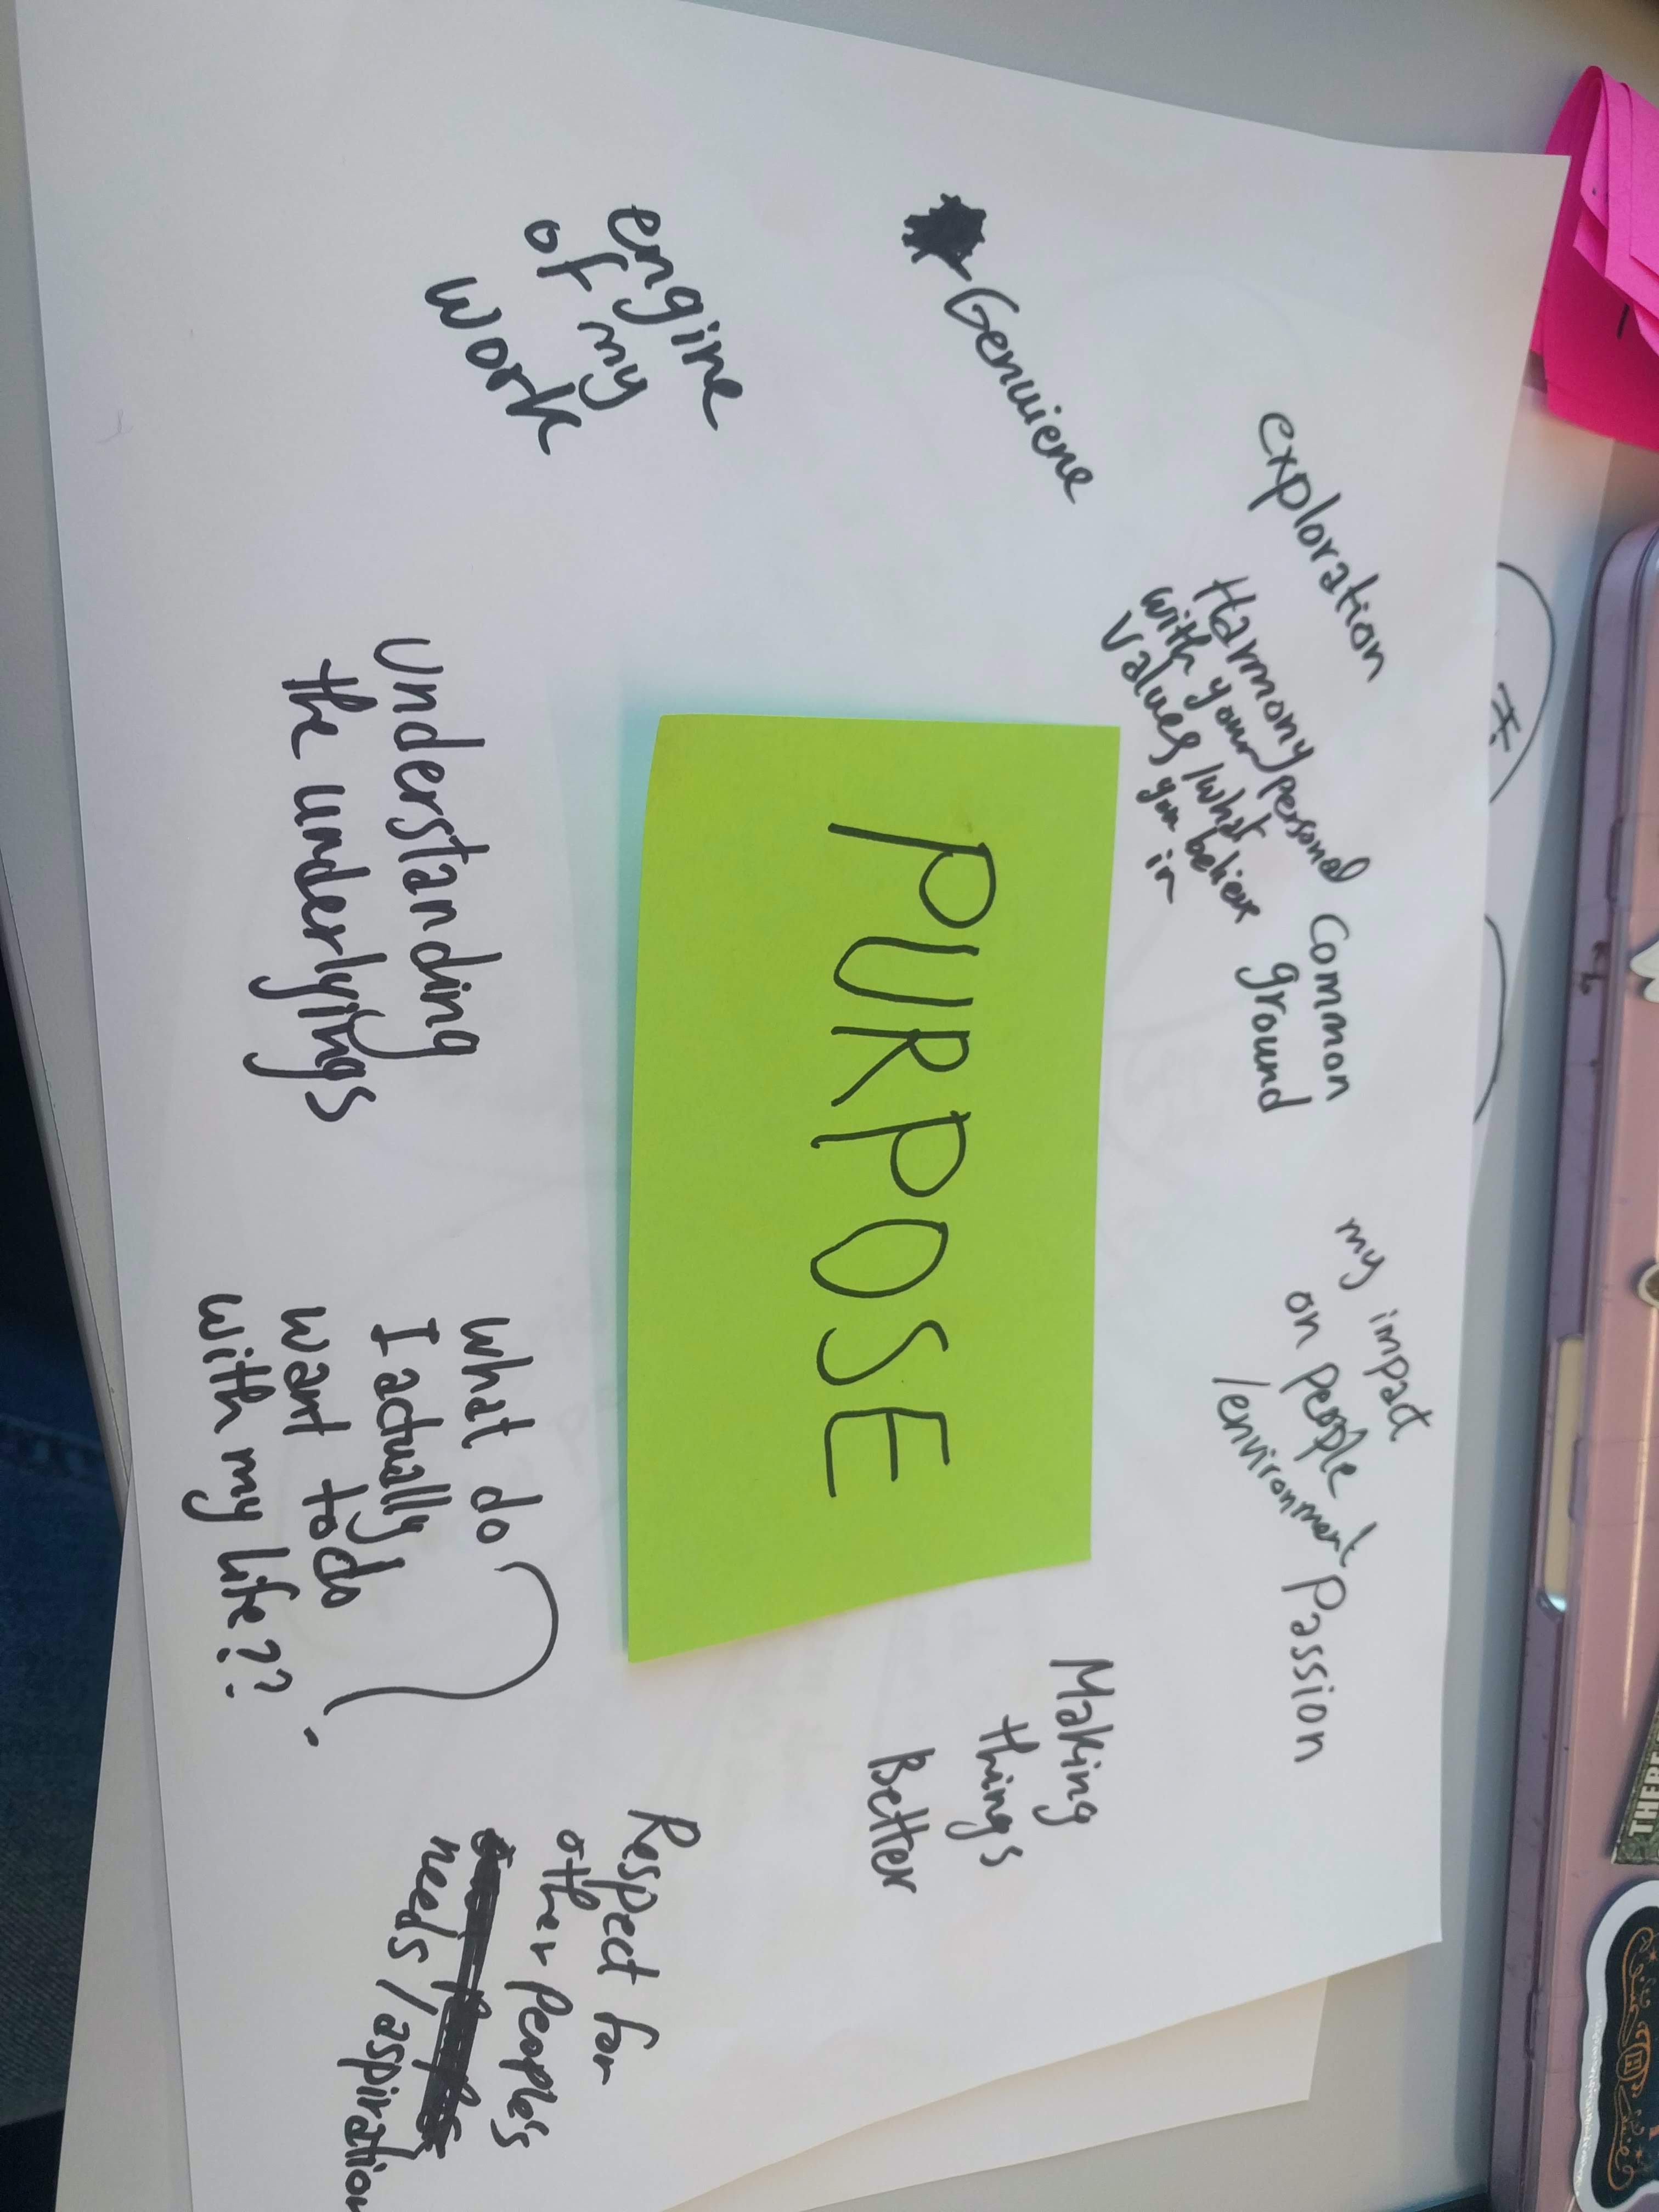 THERE
H
exploration
Harmony
with your personal
values /what
you believe
in
Common
ground
my impact
on people
/environment
Passion
Genuiene
PURPOSE
Making
things
Better
engine
of my
work
Understanding
the underlyings
what do
I actually
want to do
with my life??
?
Respect for
other people's
needs / aspiration